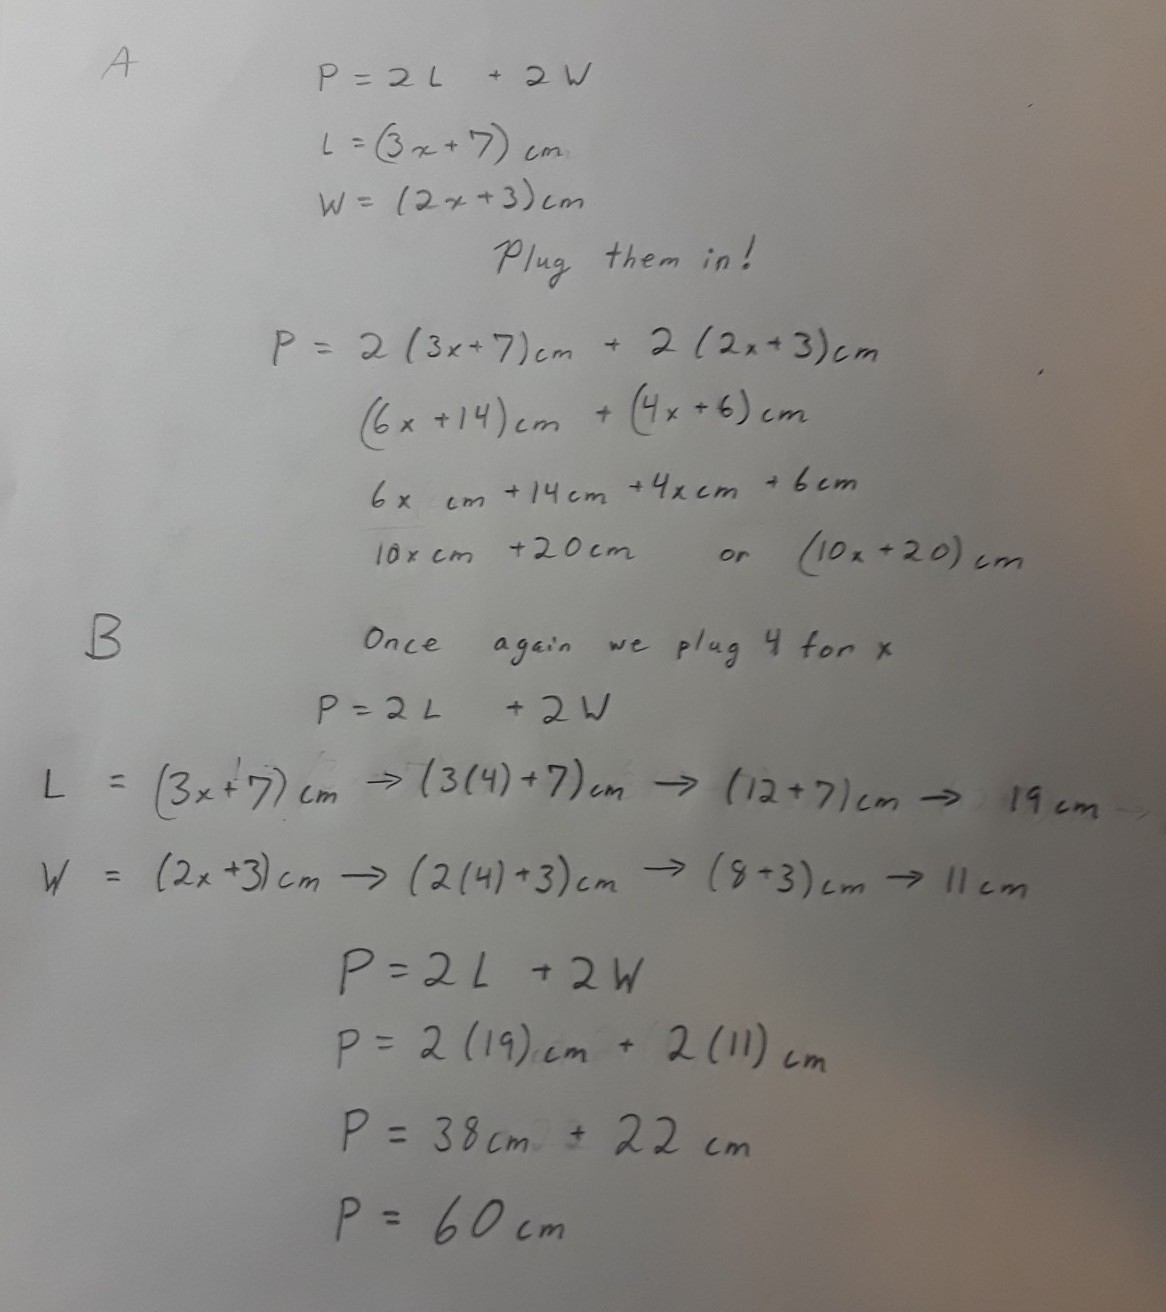 A
P = 2L + 2W
L = (3x+7) cm
W = (2x+3) cm
Plug them in!
P = 2(3x+7)cm + 2(2x+3)cm
(6x+14)cm + (4x+6)cm
6x cm +14cm +4x cm +6cm
10x cm +20cm or (10x+20) cm
B
Once again we plug 4 for x
P = 2L + 2W
L = (3x+7) cm → (3(4)+7)cm → (12+7)cm → 19cm
W = (2x+3)cm → (2(4)+3)cm → (8+3)cm → 11cm
P = 2L + 2W
P = 2(19)cm + 2(11)cm
P = 38cm + 22 cm
P = 60cm